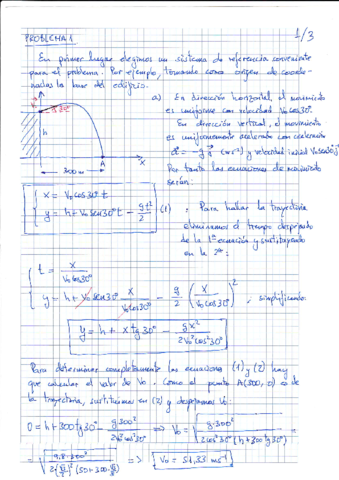 1/3
PROBLEMA 1
En primer lugar elegimos un sistema de referencia conveniente
para el problema. Por ejemplo, tomando como origen de coorde-
nadas la base del edificio.
a) En dirección horizontal, el movimiento
es uniforme con velocidad V₀cos30º.
En dirección vertical, el movimiento
es uniformemente acelerado con aceleración
a⃗ = -g j⃗ (m·s⁻²) y velocidad inicial V₀sen30º j⃗
Por tanto las ecuaciones de movimiento
serán:
y
V₀
30º
h
300 m
A
x
x = V₀cos30º t
y = h + V₀sen30º t - gt²/2 (1)
. Para hallar la trayectoria
eliminamos el tiempo despejando
de la 1ª ecuación y sustituyendo
en la 2ª:
t = x/(V₀cos30º)
y = h + V₀sen30º x/(V₀cos30º) - g/2 (x/(V₀cos30º))² ; simplificando:
y = h + x tg30º - gx²/(2V₀²cos²30º)
Para determinar completamente las ecuaciones (1) y (2) hay
que calcular el valor de V₀. Como el punto A(300,0) es de
la trayectoria, sustituimos en (2) y despejamos V₀:
0 = h + 300 tg30º - g·300²/(2V₀²cos²30º) ⟹ V₀ = √(g·300²/(2cos²30º(h+300 tg30º))) =
= √(9,8·300²/(2(√3/2)²(50+300·√3/3))) ⟹ V₀ = 51,33 ms⁻¹